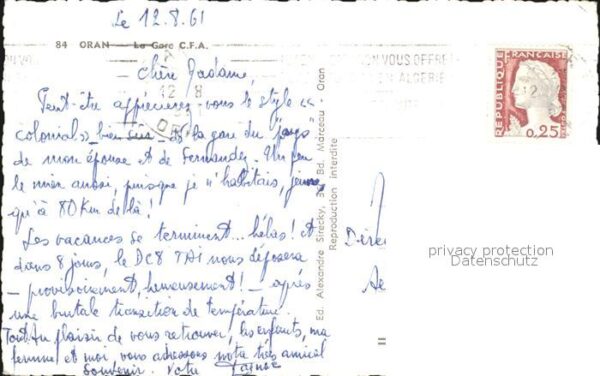 Le 12.8.61
84 ORAN — La Gare C.F.A.
VOUS OFFRE
EN ALGERIE
REPUBLIQUE FRANÇAISE
0,25
12 8
Chère Madame,
Peut-être apprécierez-vous le style «
colonial» bien sûr de la gare du "pays"
de mon épouse et de Fernandez. Un peu
le mien aussi, puisque je n'habitais, jeune
qu'à 80 Km de là !
Les vacances se terminent... hélas ! et
dans 8 jours, le DC8 TAI nous déposera
— provisoirement, heureusement ! — après
une brutale transition de température.
Tout au plaisir de vous retrouver, les enfants, ma
femme et moi vous adressons notre très amical
souvenir. Votre
Ed. Alexandre Sirecky, 3, Bd. Marceau - Oran
Reproduction interdite
Direc
privacy protection
Datenschutz